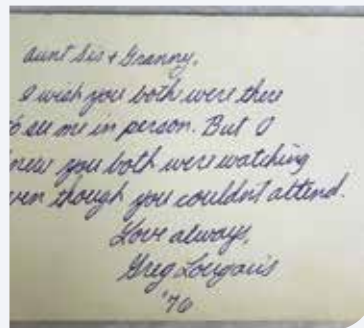 Aunt Sis + Granny,
I wish you both were there
to see me in person. But I
knew you both were watching
even though you couldn't attend.
Love always,
Greg Louganis
'76